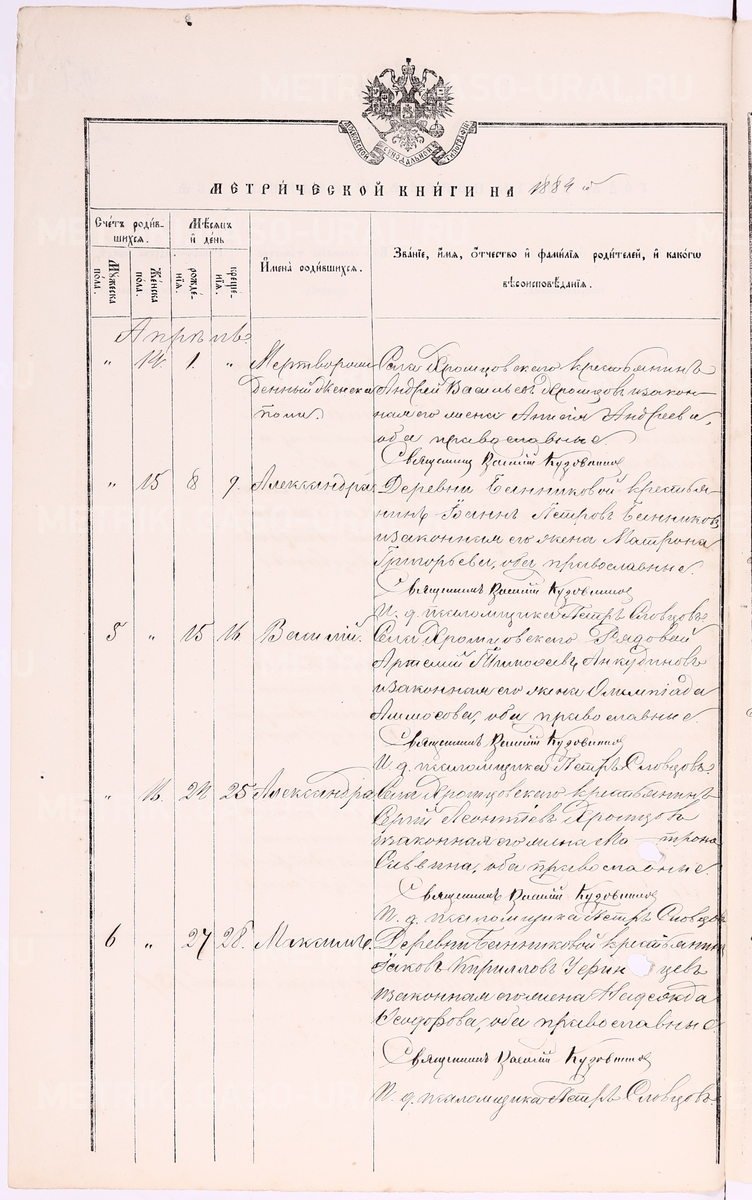 МОСКОВСКОЙ СѴНОДАЛЬНОЙ ТИПОГРАФІИ
МЕТРИ́ЧЕСКОЙ КНИ́ГИ НА 1884 й
Сче́тъ роди́в-
шихся.
Мѣ́сяцъ
и́ де́нь
Му́жеска
пола.
Же́нска
пола.
рожде́-
нія.
креще́-
нія.
И҆мена̀ роди́вшихся.
Зва́ніе, и҆́мя, ѻ҆́тчество и҆ фами́лія роди́телей, и҆ како́гѡ
вѣроисповѣ́данія.
Апрѣль
" 14. 1. " Мертворож- Села Хромцовскаго крестьянинъ
денный женска Андрей Васильевъ Хромцовъ и закон-
пола. ная его жена Анисія Андреева,
оба православные
Священникъ Василій Кудовинцовъ
" 15 8 9. Александра. Деревни Банниковой крестья-
нинъ Іоаннъ Петровъ Банниковъ
и законная его жена Матрона
Григорьева, оба православные.
Священникъ Василій
И. д. псаломщика Петръ Словцовъ.
5 " 15 16 Василій. Села Хромцовскаго Рядовой
Артемій Тимофеевъ Анкудиновъ
и законная его жена Олимпіада
Аммосова, оба православные.
Священникъ Василій
И. д. псаломщика Петръ Словцовъ.
" 16. 24 25 Александра Села Хромцовскаго крестьянинъ
Сергій Леонтіевъ Хромцовъ
и законная его жена Матрона
Саввина, оба православные.
Священникъ Василій
И. д. псаломщика Петръ Словцовъ
6 " 27 28. Максимъ. Деревни Банниковой крестьянинъ
Іаковъ Кирилловъ
и законная его жена Надежда
Ѳеодорова, оба православные
Священникъ Василій
И. д. псаломщика Петръ Словцовъ.